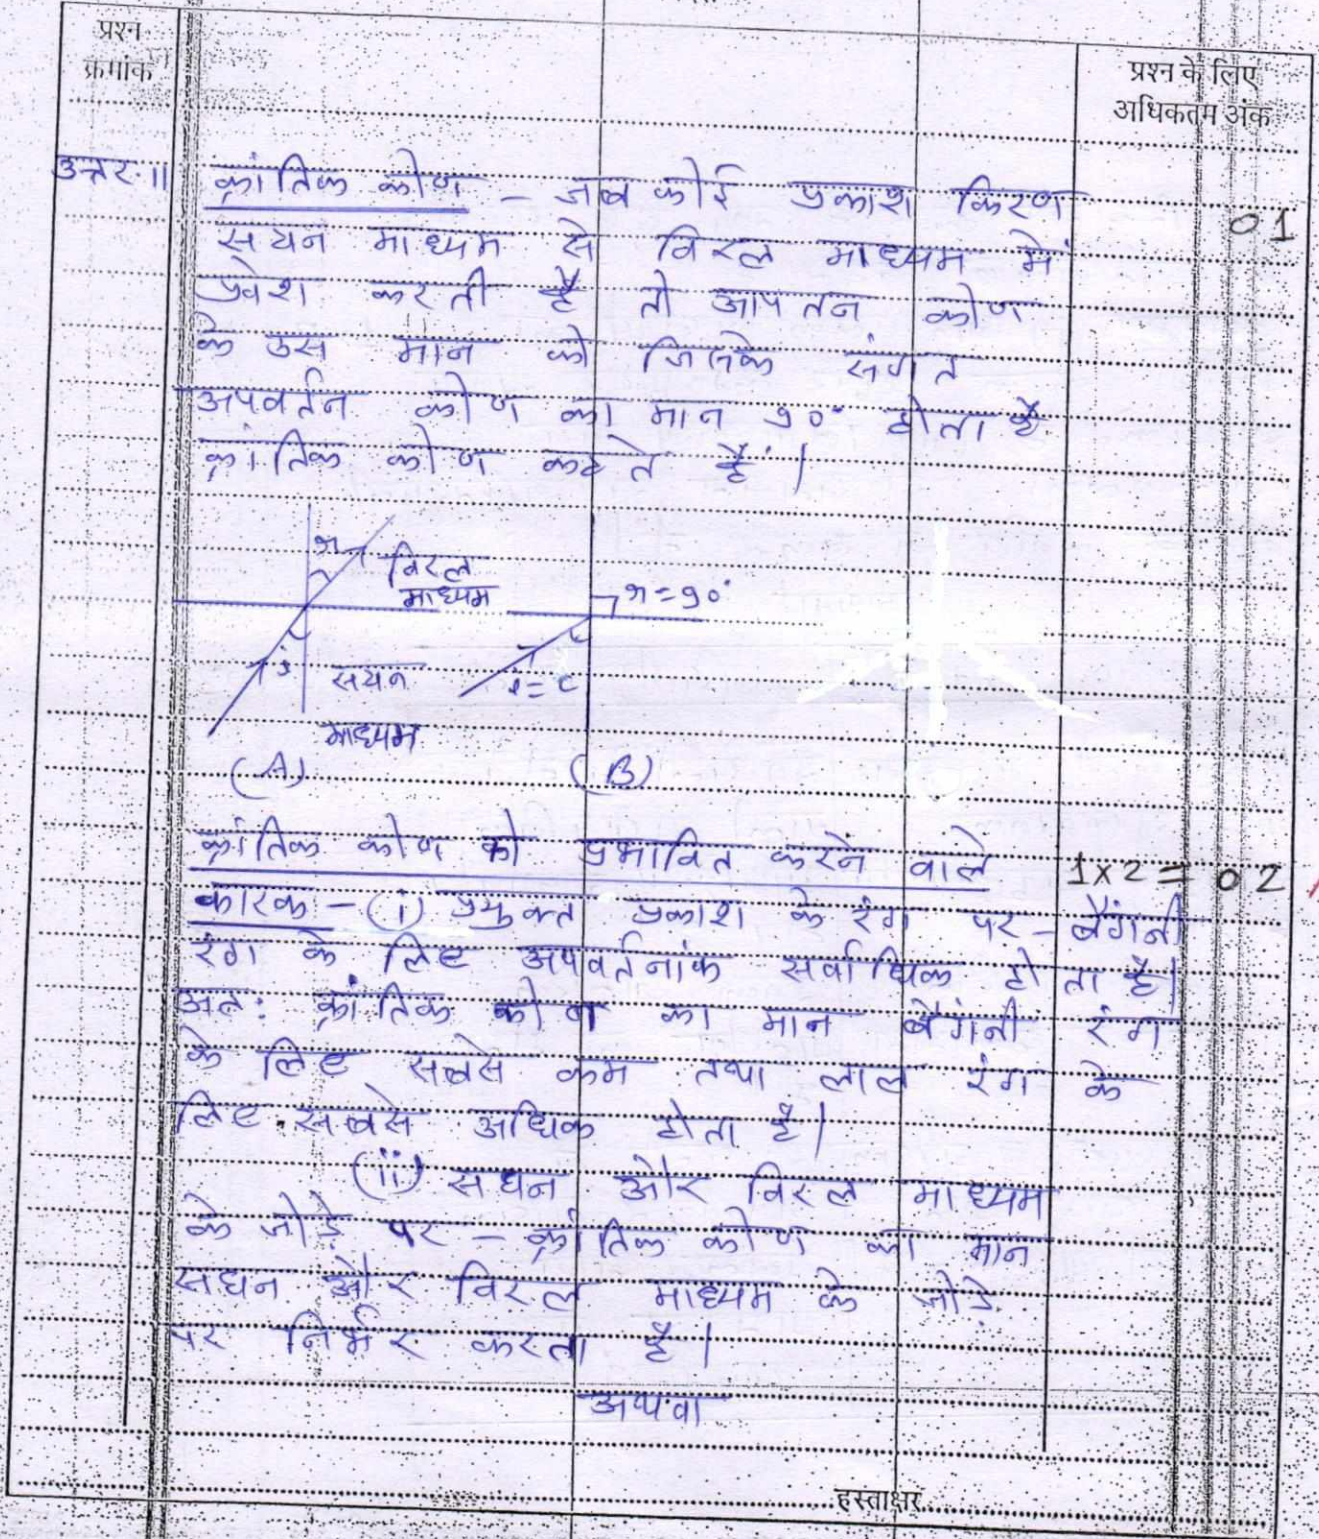 प्रश्न
क्रमांक
प्रश्न के लिए
अधिकतम अंक
उत्तर.11 क्रांतिक कोण – जब कोई प्रकाश किरण
01
सघन माध्यम से विरल माध्यम में
प्रवेश करती है तो आपतन कोण
के उस मान को जिसके संगत
अपवर्तन कोण का मान 90° होता है
क्रांतिक कोण कहते हैं।
r विरल
माध्यम
r = 90°
i सघन
i = c
माध्यम
(A) (B)
क्रांतिक कोण को प्रभावित करने वाले 1×2 = 02
कारक – (i) प्रयुक्त प्रकाश के रंग पर – बैंगनी
रंग के लिए अपवर्तनांक सर्वाधिक होता है।
अतः क्रांतिक कोण का मान बैंगनी रंग
के लिए सबसे कम तथा लाल रंग के
लिए सबसे अधिक होता है।
(ii) सघन और विरल माध्यम
के जोड़े पर – क्रांतिक कोण का मान
सघन और विरल माध्यम के जोड़े
पर निर्भर करता है।
अथवा
हस्ताक्षर